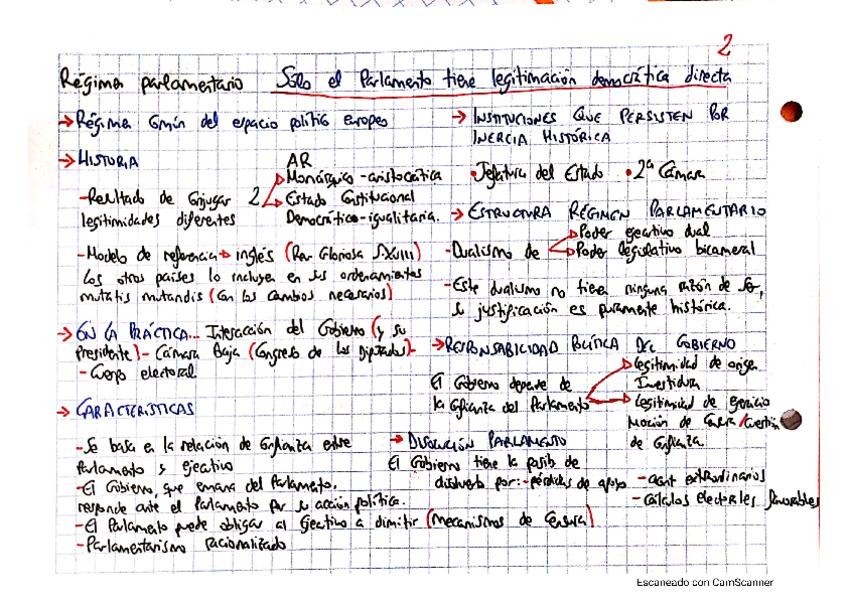 2
Régimen parlamentario Sólo el Parlamento tiene legitimación democrática directa
→ Régimen común del espacio político europeo
→ HISTORIA
- Resultado de conjugar 2
legitimidades diferentes
AR
Monárquico-aristocrática
Estado Constitucional
Democrático-igualitaria.
- Modelo de referencia → inglés (Rev Gloriosa S.XVIII)
Los otros países lo incluyen en sus ordenamientos
mutatis mutandis (con los cambios necesarios)
→ EN LA PRÁCTICA... Interacción del Gobierno (y su
Presidente) - Cámara Baja (Congreso de los Diputados) -
- Cuerpo electoral
→ CARACTERÍSTICAS
- Se basa en la relación de confianza entre
Parlamento y ejecutivo
- El Gobierno, que emana del Parlamento.
responde ante el Parlamento por su acción política.
- El Parlamento puede obligar al ejecutivo a dimitir (mecanismos de censura)
- Parlamentarismo racionalizado
→ INSTITUCIONES QUE PERSISTEN POR
INERCIA HISTÓRICA
• Jefatura del Estado • 2ª Cámara
→ ESTRUCTURA RÉGIMEN PARLAMENTARIO
- Dualismo de
Poder ejecutivo dual
Poder legislativo bicameral
- Este dualismo no tiene ninguna razón de ser,
su justificación es puramente histórica.
→ RESPONSABILIDAD POLÍTICA DEL GOBIERNO
El Gobierno depende de
la confianza del Parlamento
legitimidad de origen
Investidura
legitimidad de ejercicio
Moción de censura/cuestión
de confianza.
→ DISOLUCIÓN PARLAMENTO
El Gobierno tiene la posib de
disolverlo por: - pérdidas de apoyo
- acont extraordinarios
- cálculos electorales favorables
Escaneado con CamScanner